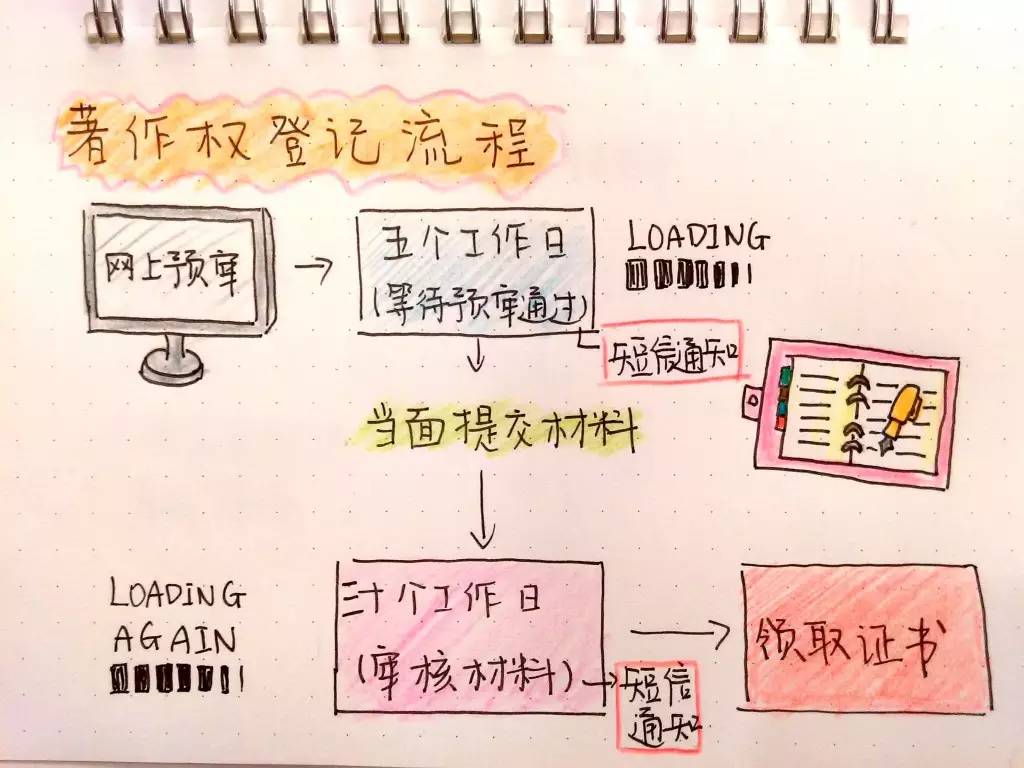 著作权登记流程
网上预审
五个工作日
(等待预审通过)
LOADING
短信通知
当面提交材料
LOADING
AGAIN
三十个工作日
(审核材料)
短信
通知
领取证书